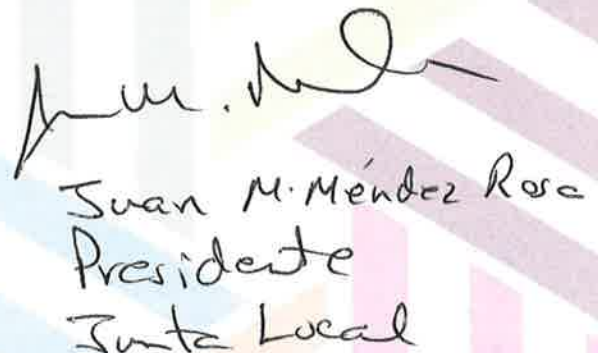 Juan M. Méndez Rosa
Presidente
Junta Local